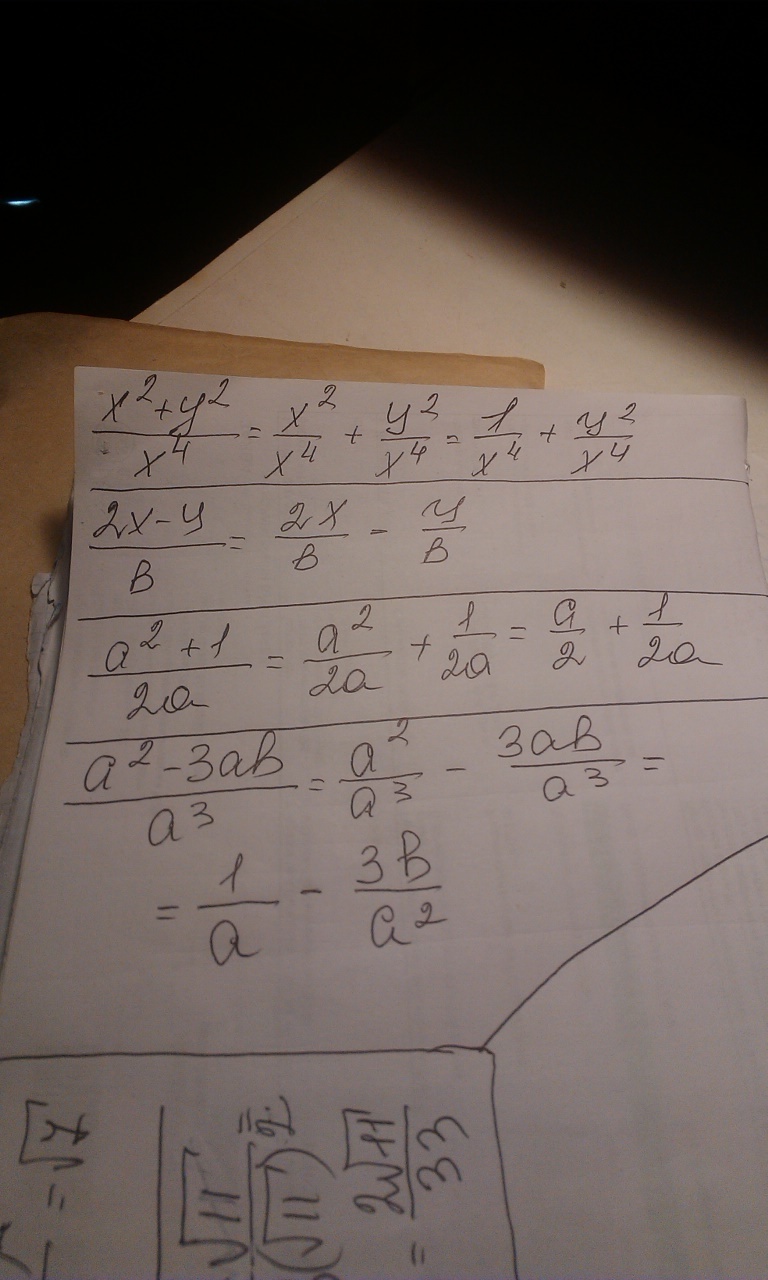 x²+y²/x⁴ = x²/x⁴ + y²/x⁴ = 1/x⁴ + y²/x⁴
2x-y/B = 2x/B - y/B
a²+1/2a = a²/2a + 1/2a = a/2 + 1/2a
a²-3aB/a³ = a²/a³ - 3aB/a³ =
= 1/a - 3B/a²
√11/(√11)² =
= 2√11/33